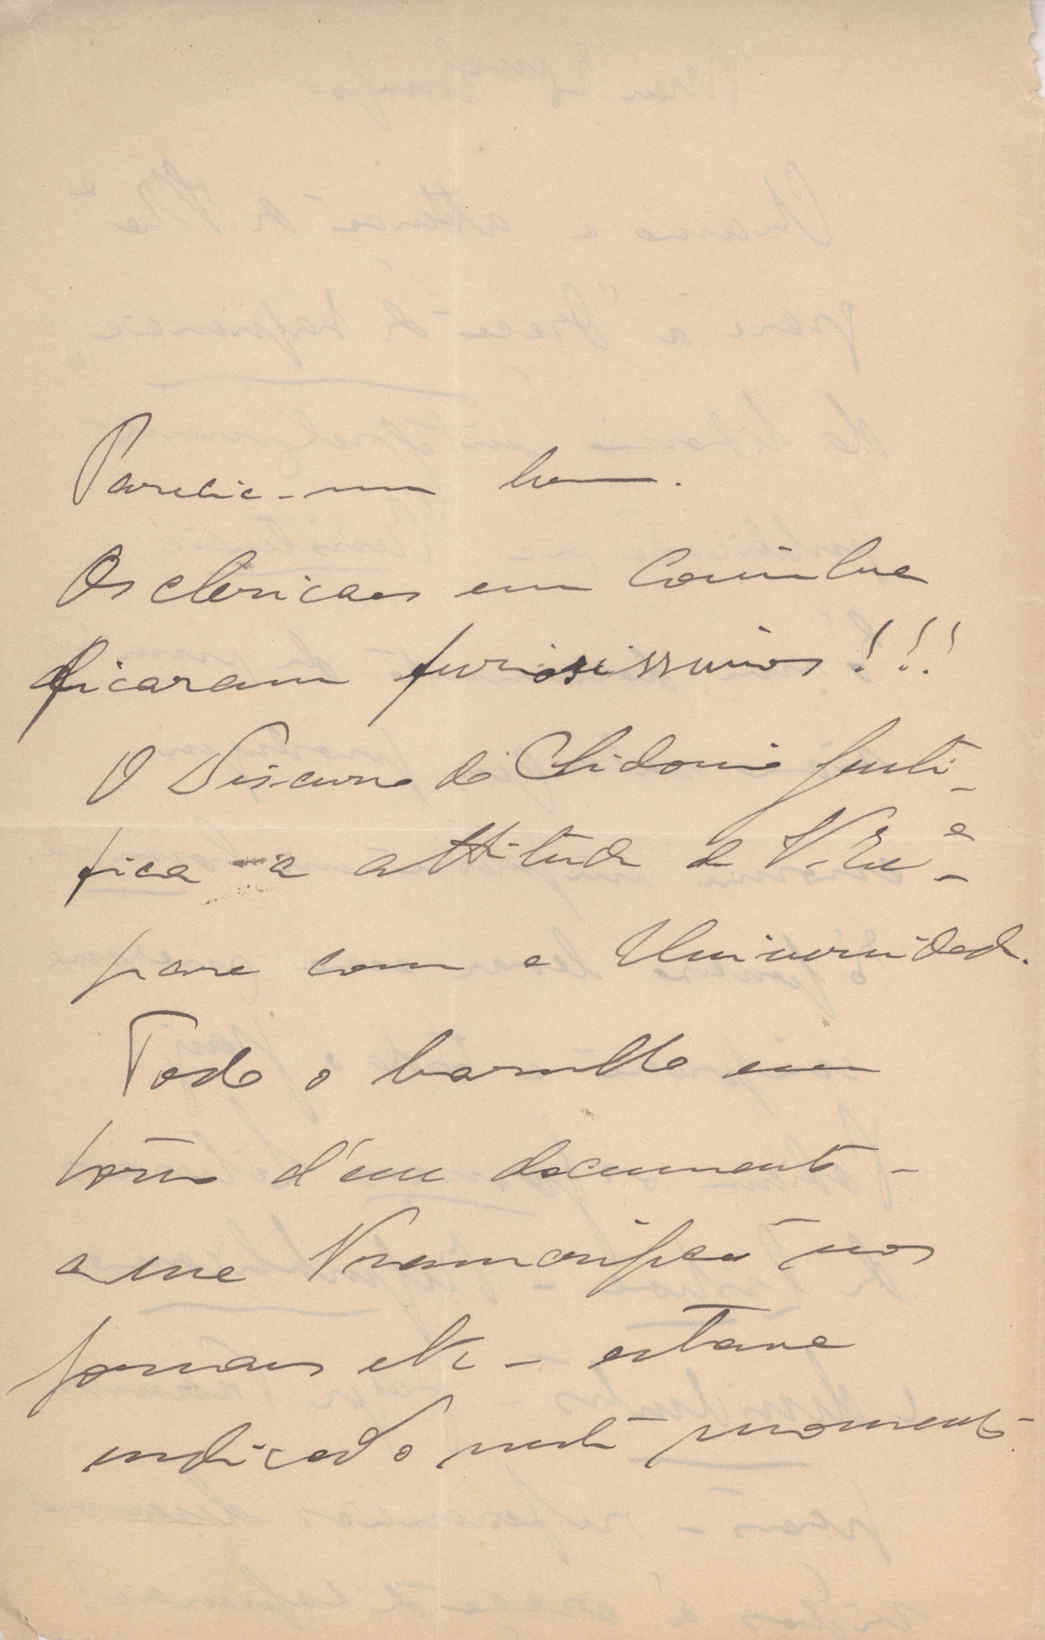 Parecia-me bom.
Os clericaes em Coimbra
ficaram furiosissimos!!!
O Discurso do Sidonio justi-
fica a attitude de V. Exª
para com a Universidade.
Todo o barulho em
torno d'um documento -
a sua transcripção nos
jornaes etc - estava
indicado neste momento.